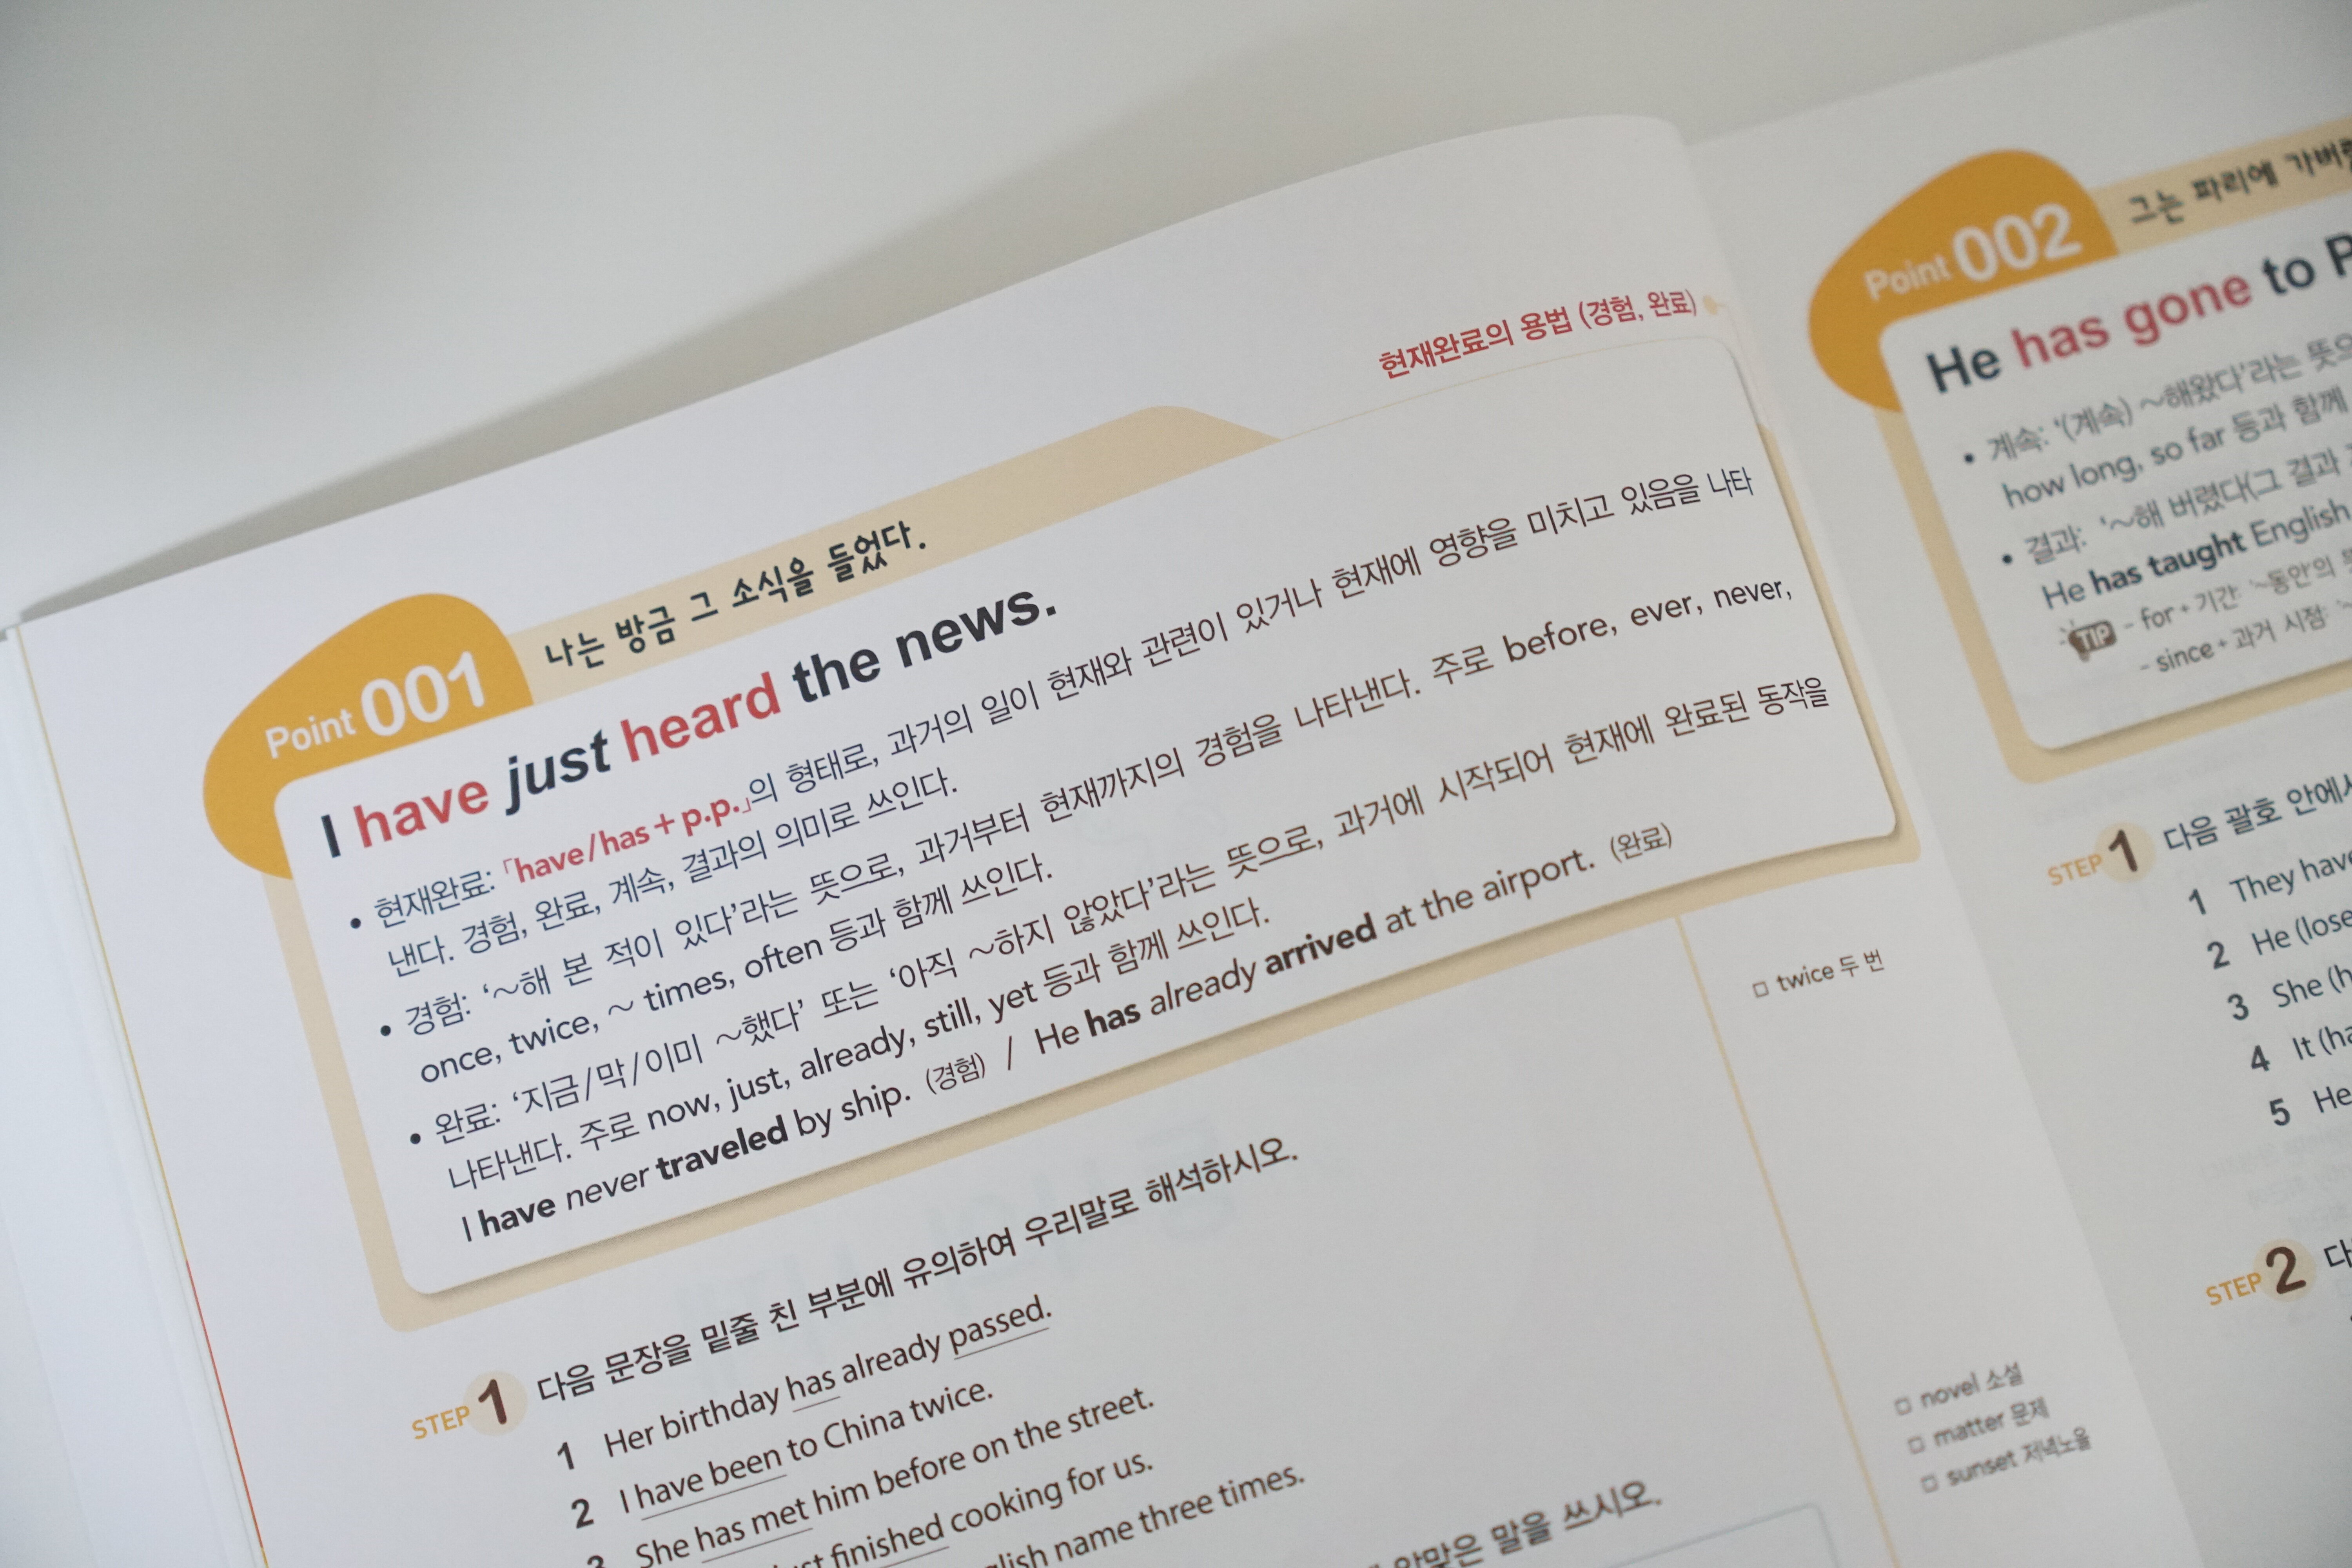 현재완료의 용법 (경험, 완료)
Point 001 나는 방금 그 소식을 들었다.
I have just heard the news.
• 현재완료: 「have/has + p.p.」의 형태로, 과거의 일이 현재와 관련이 있거나 현재에 영향을 미치고 있음을 나타
낸다. 경험, 완료, 계속, 결과의 의미로 쓰인다.
• 경험: ‘~해 본 적이 있다’라는 뜻으로, 과거부터 현재까지의 경험을 나타낸다. 주로 before, ever, never,
once, twice, ~ times, often 등과 함께 쓰인다.
• 완료: ‘지금/막/이미 ~했다’ 또는 ‘아직 ~하지 않았다’라는 뜻으로, 과거에 시작되어 현재에 완료된 동작을
나타낸다. 주로 now, just, already, still, yet 등과 함께 쓰인다.
I have never traveled by ship. (경험) / He has already arrived at the airport. (완료)
STEP 1 다음 문장을 밑줄 친 부분에 유의하여 우리말로 해석하시오.
1 Her birthday has already passed.
2 I have been to China twice.
3 She has met him before on the street.
finished cooking for us.
name three times.
알맞은 말을 쓰시오.
□ twice 두 번
□ novel 소설
□ matter 문제
□ sunset 저녁노을
Point 002 그는 파리에
He has gone to P
• 계속: ‘(계속) ~해왔다’라는
how long, so far 등과 함께
• 결과: ‘~해 버렸다(그 결과
He has taught English
TIP - for + 기간: ‘~동안’의
- since + 과거 시점:
STEP 1 다음 괄호 안에서
1 They have
2 He (lose
3 She (h
4 It (ha
5 He
STEP 2 다